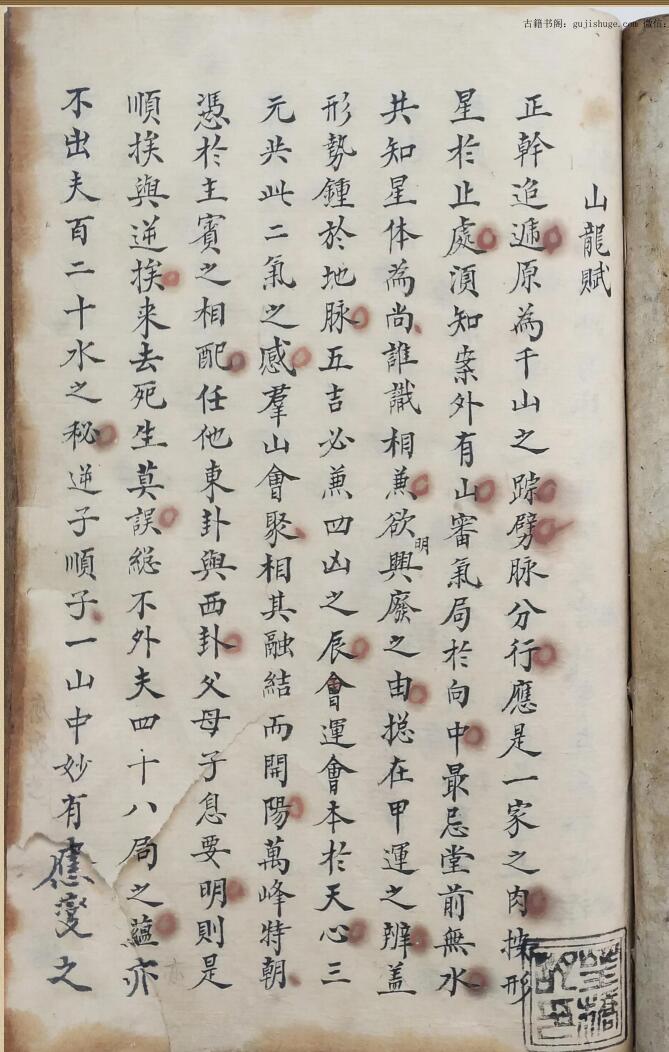 古籍书阁：gujishuge.com 微信：
山龍賦
正幹追遞原為千山之踪劈脉分行應是一家之肉揀形
星於止處湏知案外有山審氣局於向中最忌堂前無水
共知星体為尚誰識相兼欲明興廢之由摠在甲運之辨盖
形勢鍾於地脉五吉必兼四凶之辰會運會本於天心三
元共此二氣之感羣山會聚相其融結而開陽萬峰特朝
憑於主賓之相配任他東卦與西卦父母子息要明則是
順挨與逆挨来去死生莫誤緫不外夫四十八局之蘊亦
不出夫百二十水之秘逆子順子一山中妙有應変之